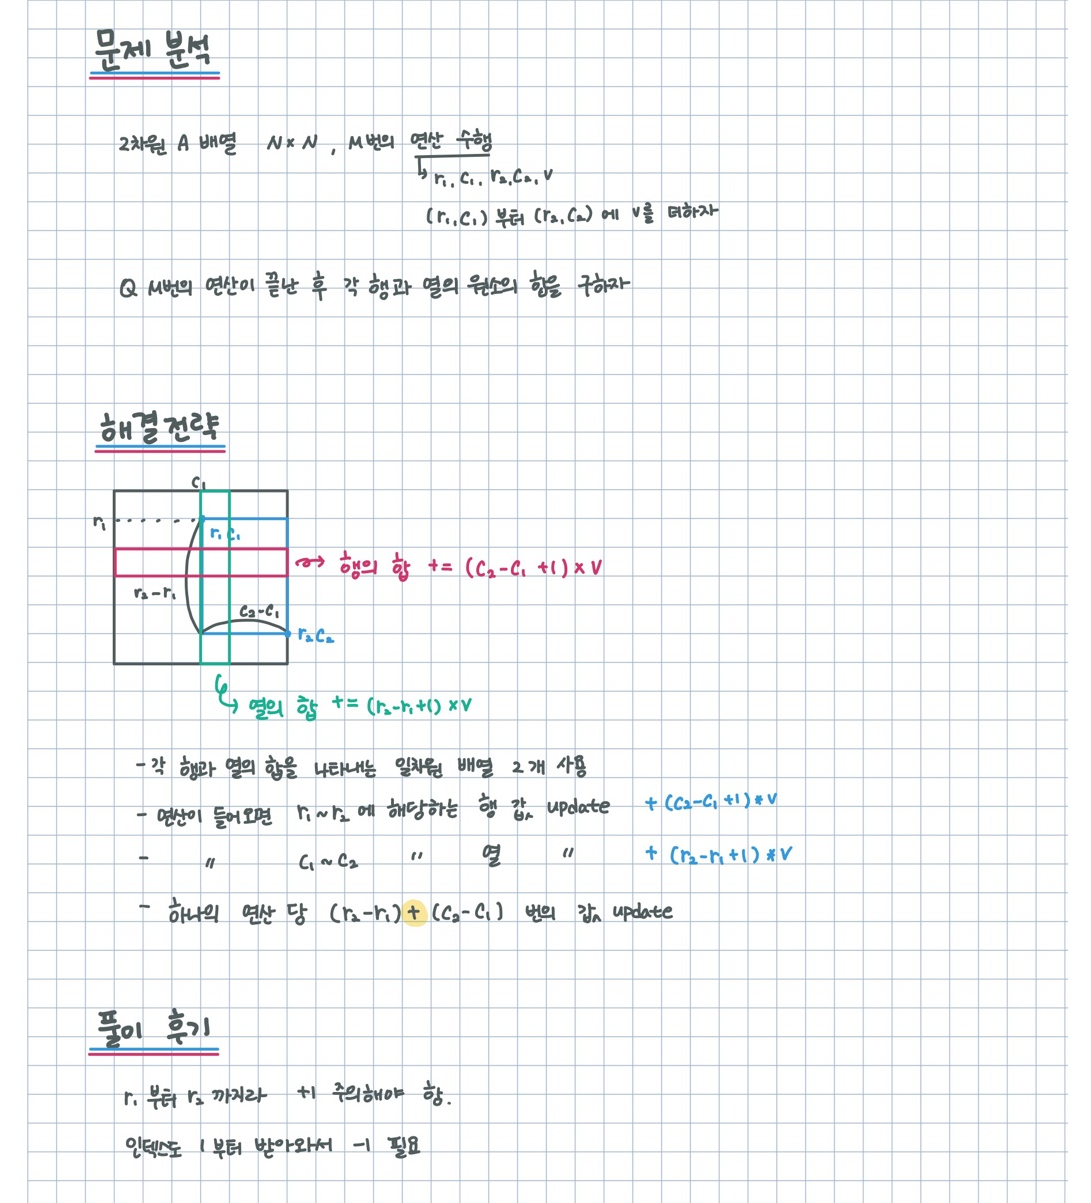 문제 분석
2차원 A 배열 N × N , M번의 연산 수행
r₁, c₁, r₂, c₂, v
(r₁, c₁) 부터 (r₂, c₂) 에 v를 더하자
Q M번의 연산이 끝난 후 각 행과 열의 원소의 합을 구하자
해결전략
c₁
r₁
r₁ c₁
행의 합 += (c₂-c₁ +1) × v
r₂-r₁
c₂-c₁
r₂ c₂
열의 합 += (r₂-r₁+1) × v
- 각 행과 열의 합을 나타내는 일차원 배열 2개 사용
- 연산이 들어오면 r₁~r₂ 에 해당하는 행 값 update + (c₂-c₁+1)*v
- 〃 c₁~c₂ 〃 열 〃 + (r₂-r₁+1)*v
- 하나의 연산 당 (r₂-r₁) + (c₂-c₁) 번의 값 update
풀이 후기
r₁ 부터 r₂ 까지라 +1 주의해야 함.
인덱스도 1부터 받아와서 -1 필요